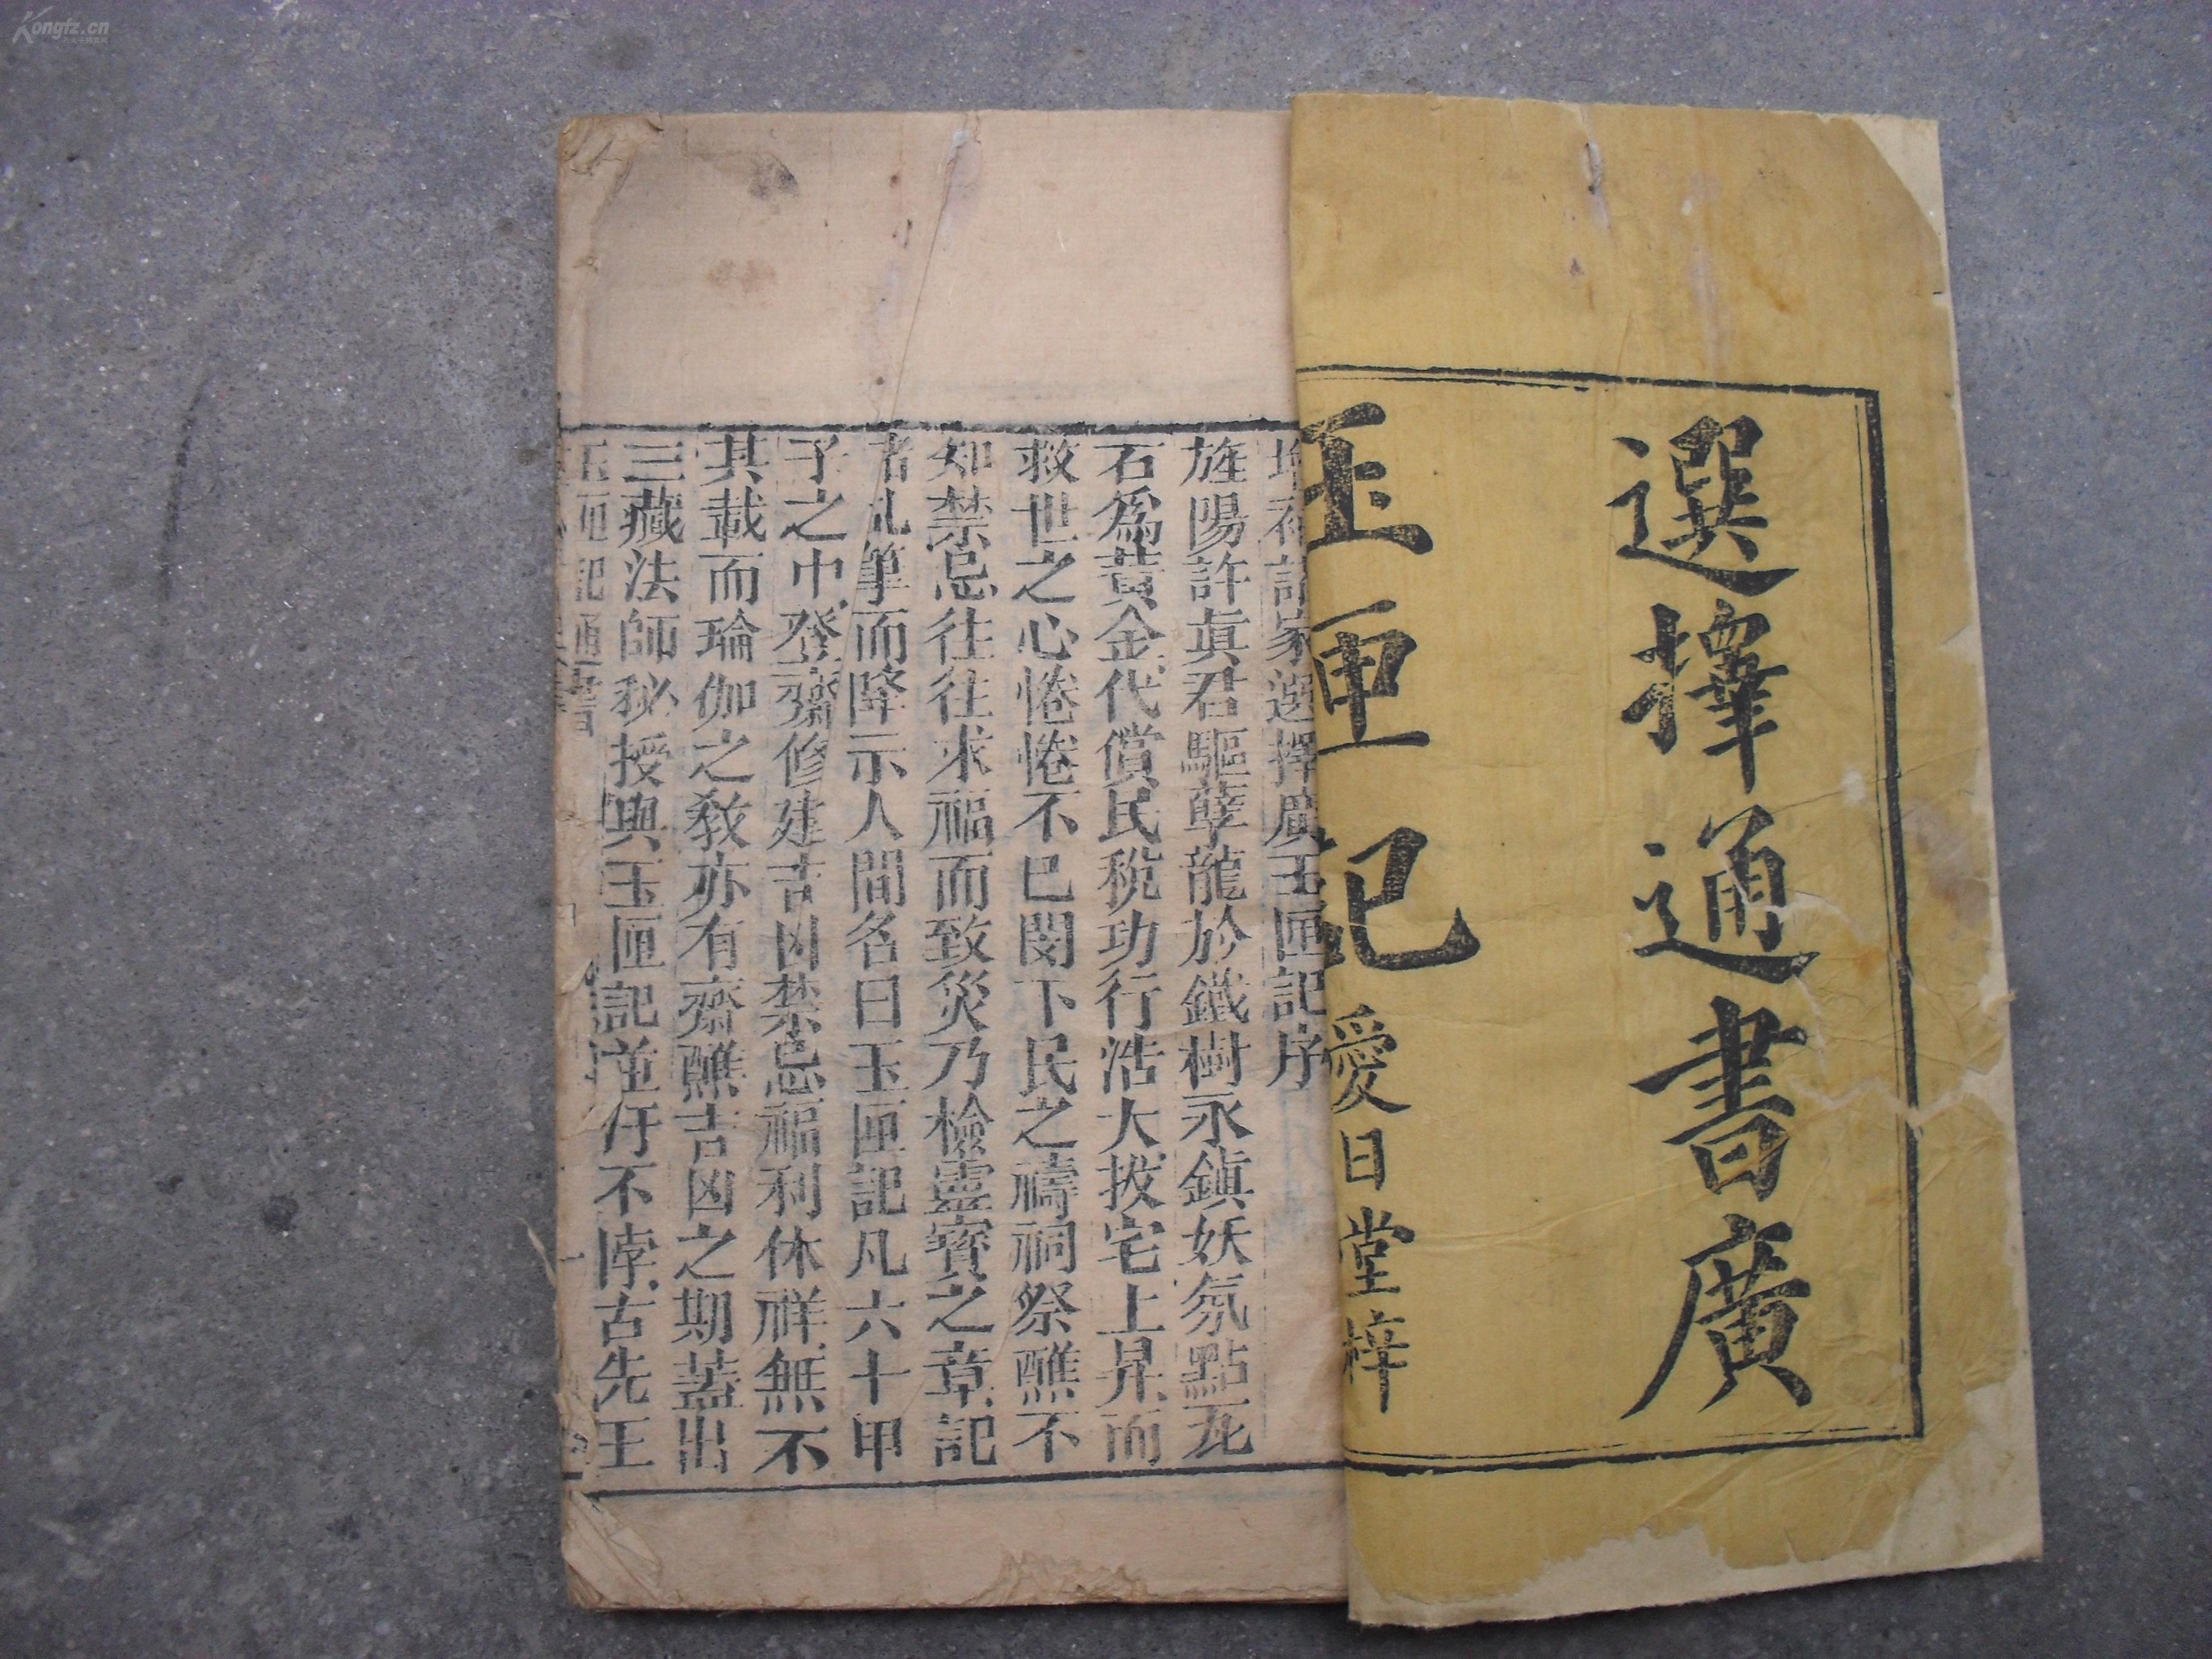 選擇通書廣
玉匣記
愛日堂梓
增補諸家選擇廣玉匣記序
旌陽許眞君驅孽龍於鐵樹永鎮妖氛點瓦
石爲黃金代償民稅功行浩大拔宅上昇而
救世之心惓惓不已閔下民之禱祠祭醮不
知禁忌往往求福而致災乃檢靈寳之章記
諸乩筆而降示人間名曰玉匣記凡六十甲
子之中登齋修建吉凶禁忌福利休祥無不
其載而瑜伽之教亦有齋醮吉凶之期蓋出
三藏法師秘授與玉匣記並行不悖古先王
玉匣記通書
一
Kongfz.cn